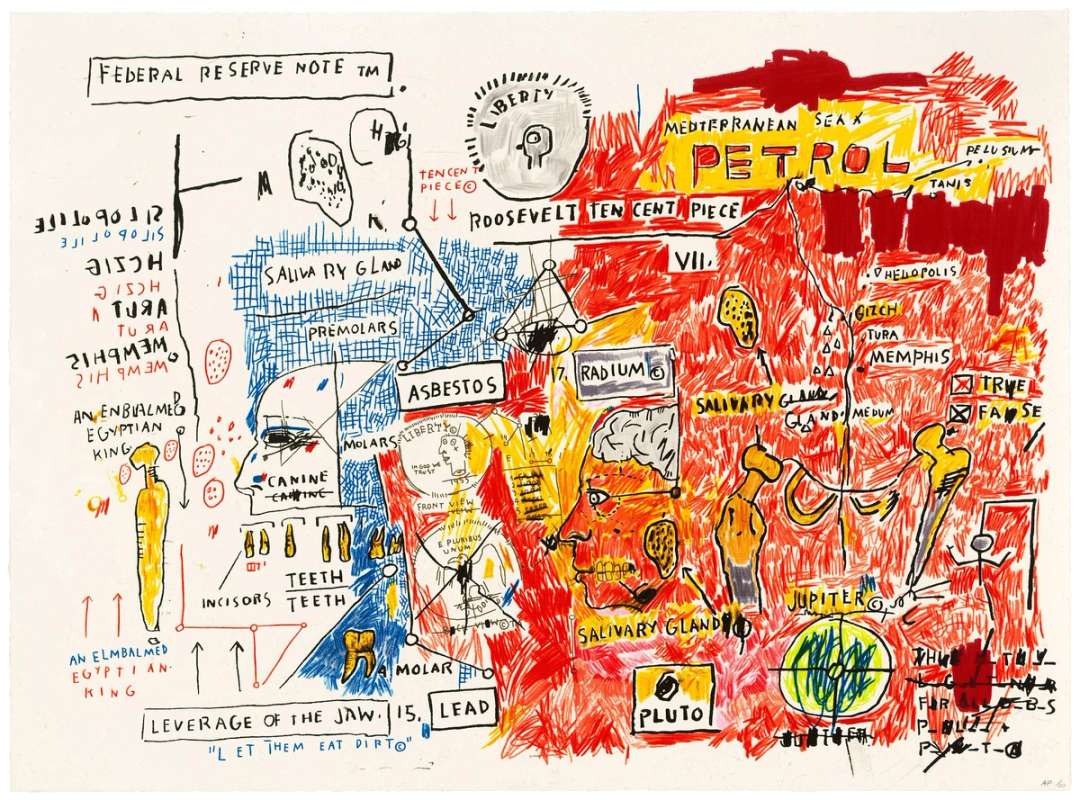 FEDERAL RESERVE NOTE TM
LIBERTY
MEDTERRANEAN SEA X
PETROL
PELUSIUM
TANIS
TEN CENT
PIECE©
ROOSEVELT TEN CENT PIECE
VII.
SILOPOLIE
SILOPOLIE
HCZIG
HCZIG
ARUT
ARUT
MEMPHIS
MEMPHIS
SALIVARY GLAND
PREMOLARS
HELIOPOLIS
GIZCH
TURA
MEMPHIS
MEDUM
TRUE
FALSE
ASBESTOS
17, RADIUM©
SALIVARY GLAND
GLAND.
AN ENBVALMED
EGYPTIAN
KING
MOLARS
LIBERTY©
IN GOD WE
TRUST
1955
FRONT VIEW
E PLURIBUS
UNUM
CANINE
CANINE
INCISORS
TEETH
TEETH
AN ELMBALMED
EGYPTIAN.
KING
SALIVARY GLAND
JUPITER©
A MOLAR
15. LEAD
PLUTO
JUPITER
LEVERAGE OF THE JAW.
"LET THEM EAT DIRT©"
AP